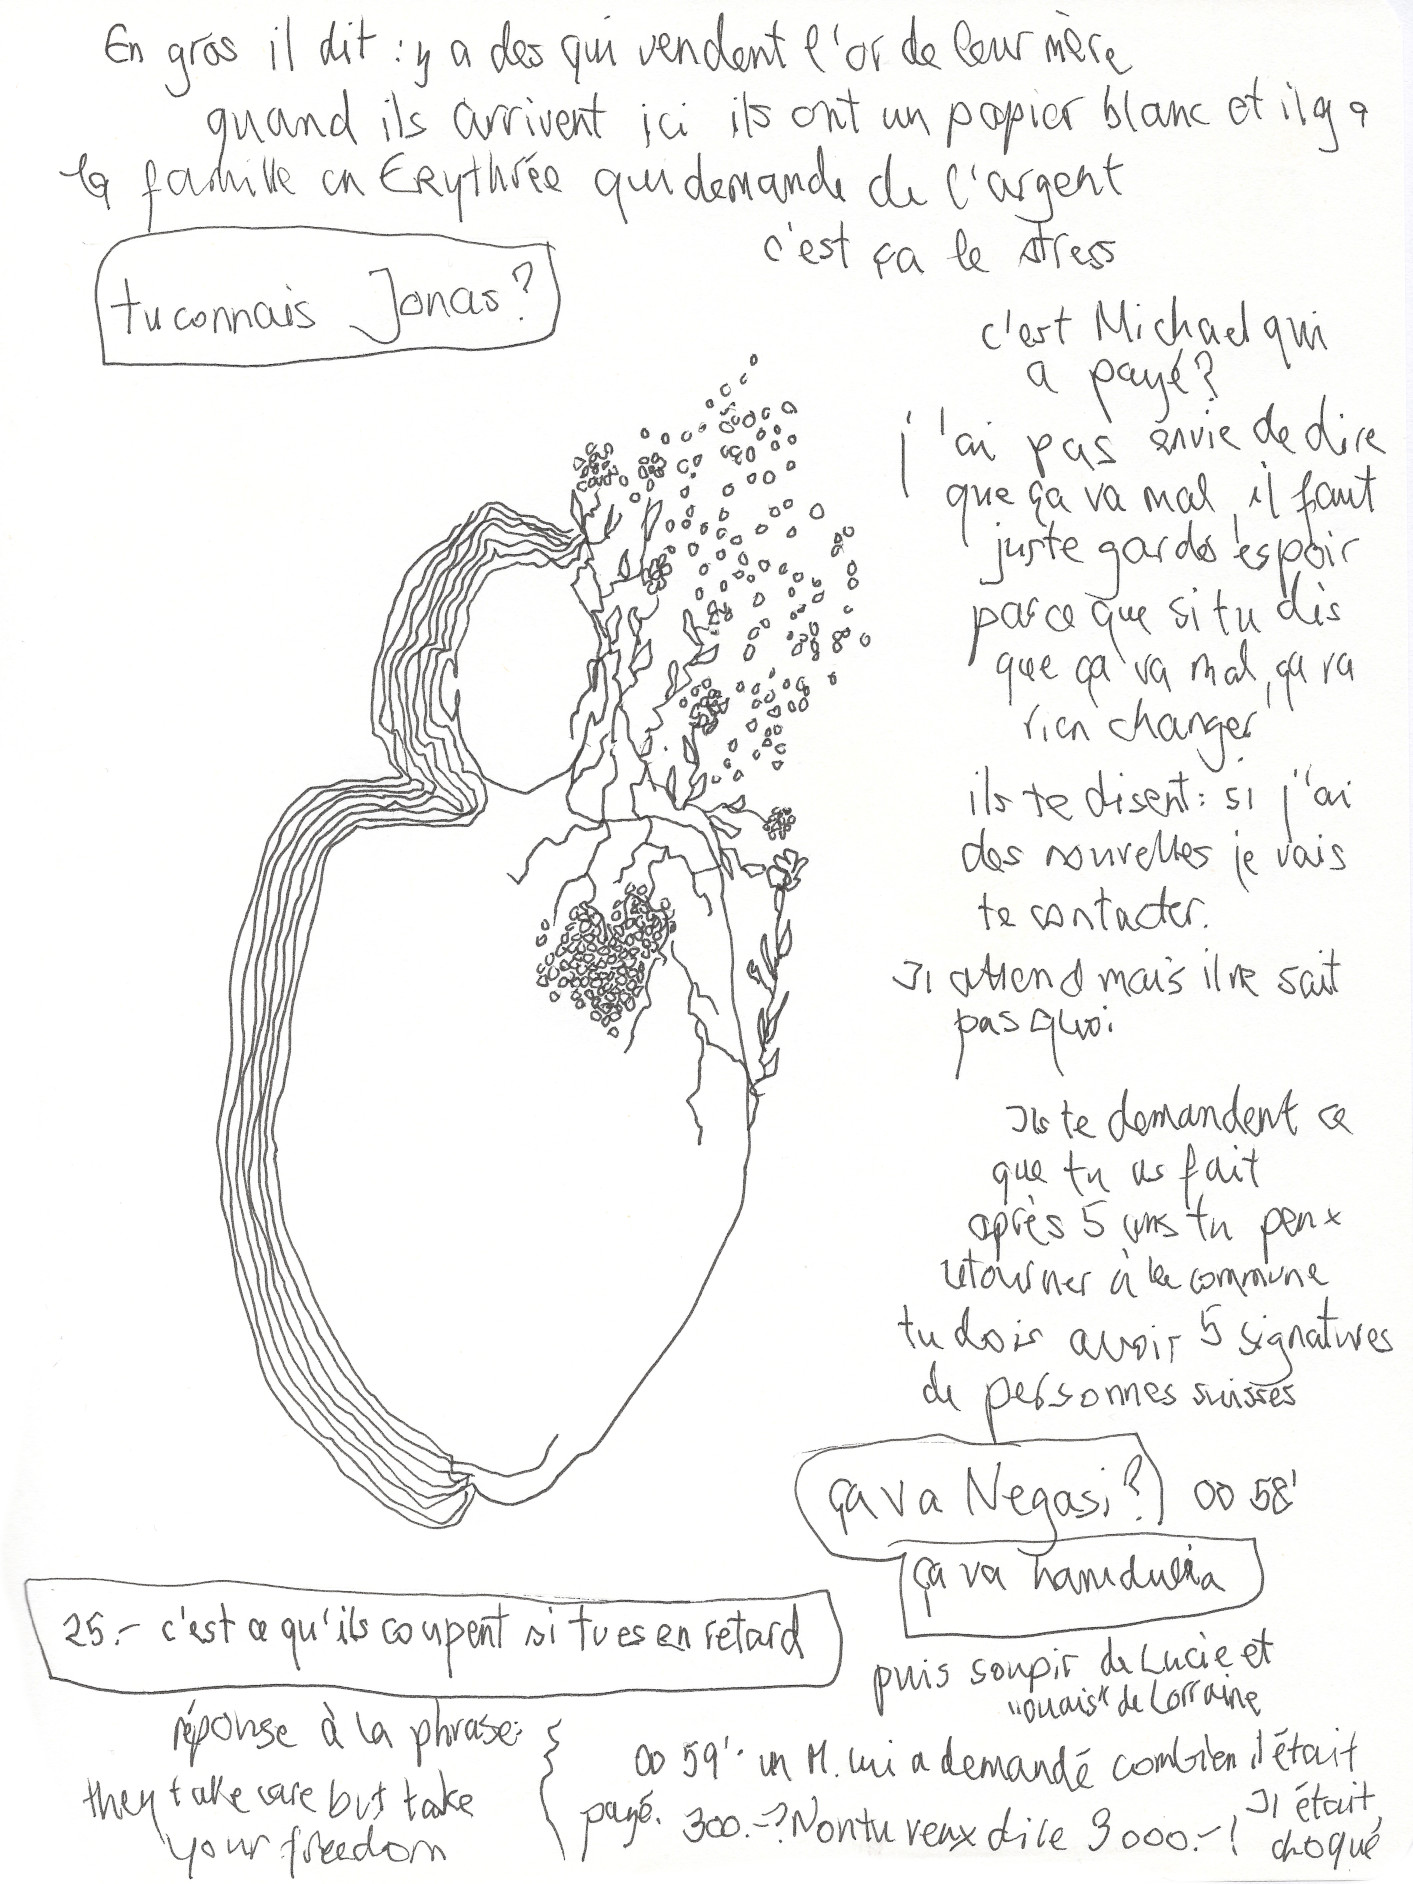 En gros il dit : y a des qui vendent l'or de leur mère
quand ils arrivent ici ils ont un papier blanc et il y a
la famille en Erythrée qui demande de l'argent
c'est ça le stress
tu connais Jonas ?
c'est Michael qui
a payé ?
j'ai pas envie de dire
que ça va mal, il faut
juste garder espoir
parce que si tu dis
que ça va mal, ça va
rien changer
ils te disent : si j'ai
des nouvelles je vais
te contacter.
Il attend mais il ne sait
pas quoi
Ils te demandent ce
que tu as fait
après 5 ans tu peux
retourner à la commune
tu dois avoir 5 signatures
de personnes suisses
ça va Negasi ? 00 58'
ça va hamdulia
25.- c'est ce qu'ils coupent si tu es en retard
puis soupir de Lucie et
"ouais" de Lorraine
réponse à la phrase :
they take care but take
your freedom
00 59' un M. lui a demandé combien il était
payé. 300.-? Non tu veux dire 3000.-! Il était
choqué